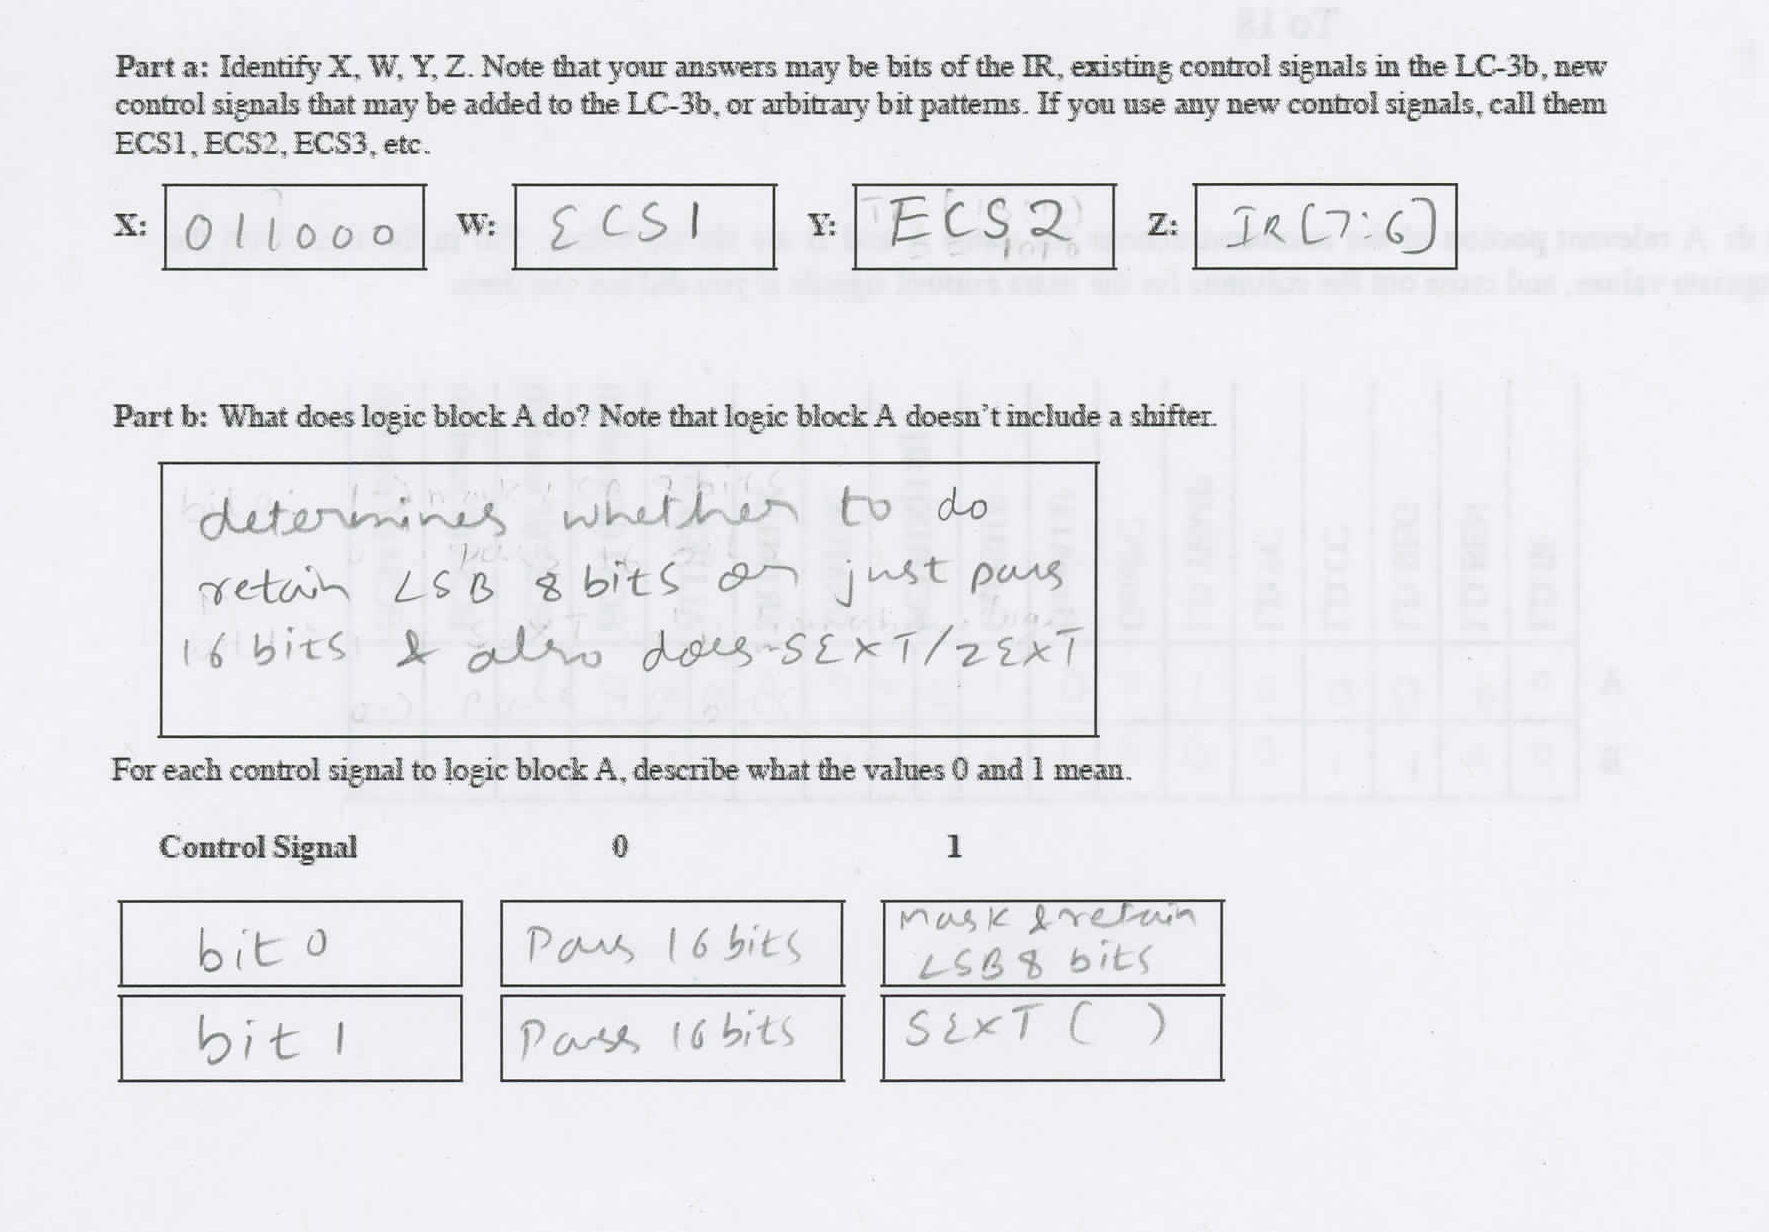 Part a: Identify X, W, Y, Z. Note that your answers may be bits of the IR, existing control signals in the LC-3b, new
control signals that may be added to the LC-3b, or arbitrary bit patterns. If you use any new control signals, call them
ECS1, ECS2, ECS3, etc.
X: 011000 W: ECS1 Y: ECS2 Z: IR[7:6]
Part b: What does logic block A do? Note that logic block A doesn't include a shifter.
determines whether to do
retain LSB 8 bits or just pass
16 bits & also does SEXT/ZEXT
For each control signal to logic block A, describe what the values 0 and 1 mean.
Control Signal 0 1
bit 0 Pass 16 bits Mask & retain
LSB 8 bits
bit 1 Pass 16 bits SEXT ( )